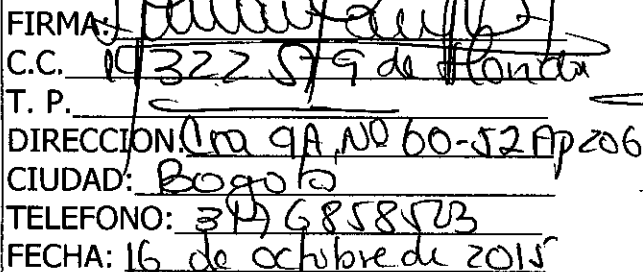 FIRMA:
C.C. 14322579 de Honda
T. P.
DIRECCION: Cra 9A Nº 60-52 Ap 206
CIUDAD: Bogota
TELEFONO: 3146858523
FECHA: 16 de octubre de 2015